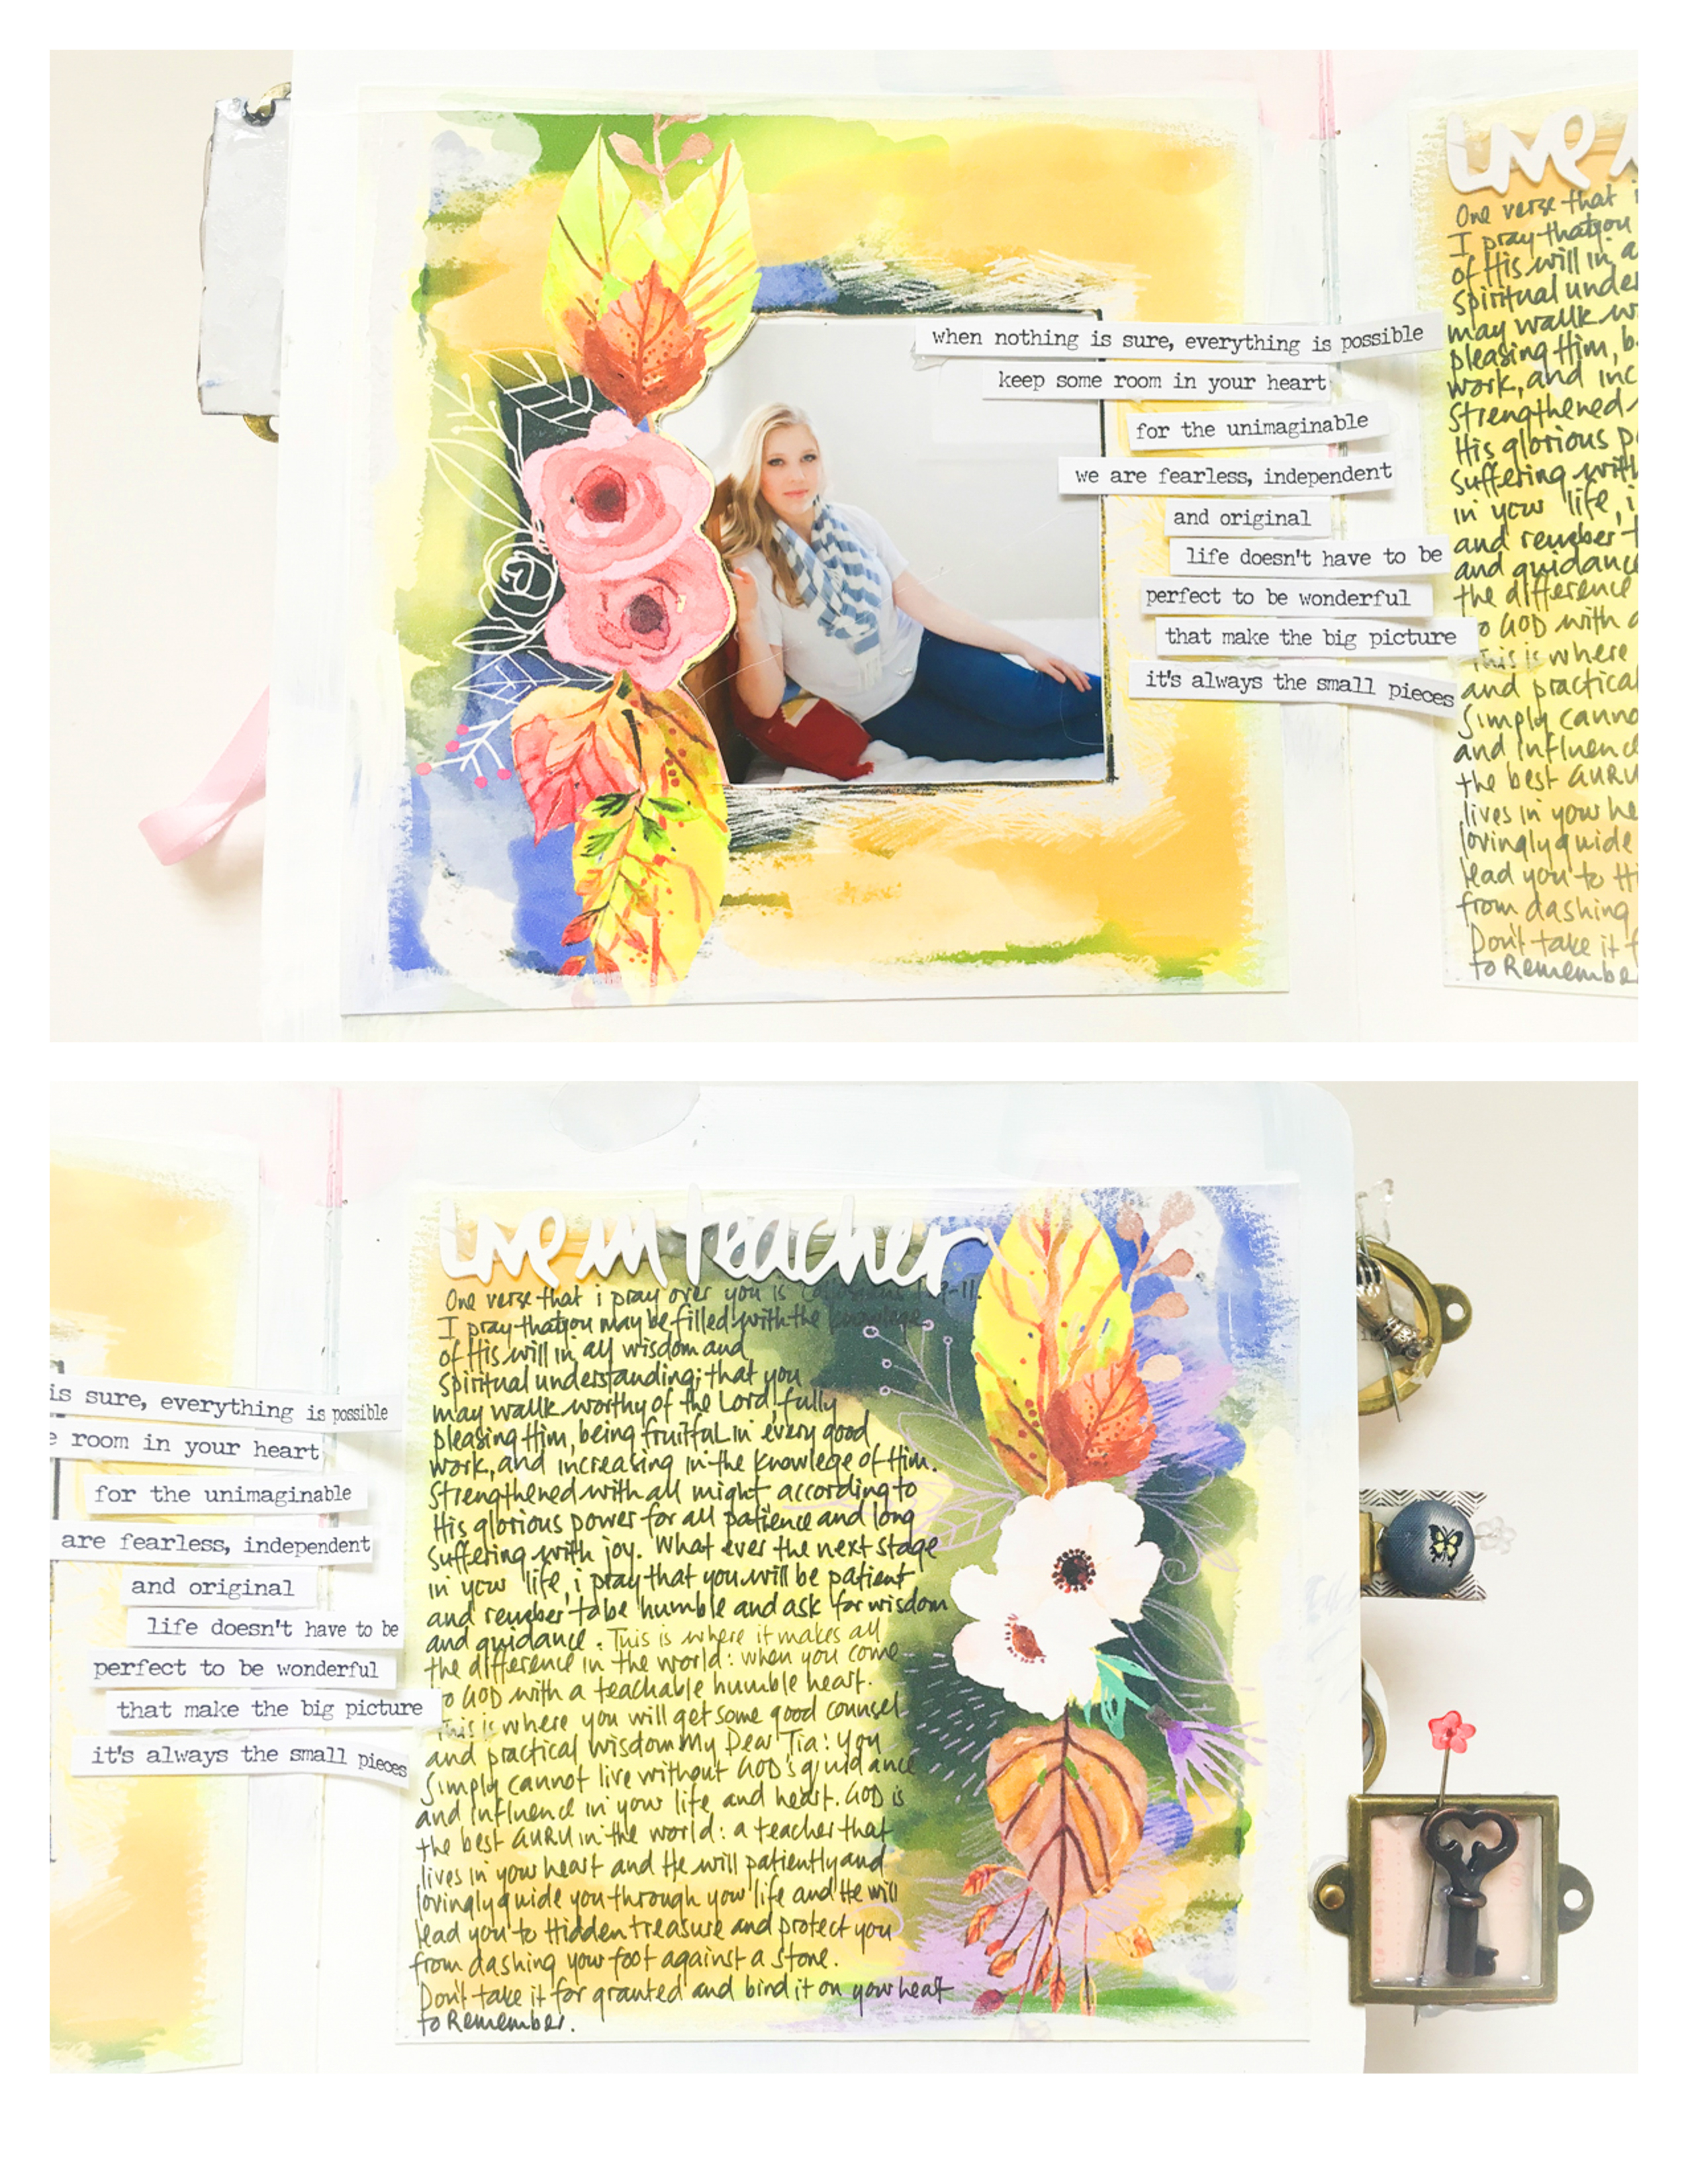 when nothing is sure, everything is possible
keep some room in your heart
for the unimaginable
we are fearless, independent
and original
life doesn't have to be
perfect to be wonderful
that make the big picture
it's always the small pieces
Live
One verse that i
I pray thatyou
of His will in a
Spiritual under
may walk w
pleasing Him, b
work, and inc
Strengthened
His glorious p
Suffering with
in your life, i
and rember t
and guidanc
the difference
o GOD with a
This is where
and practical
Simply canno
and influenc
the best GURU
lives in your he
lovingly guide
lead you to Hi
from dashing
Don't take it f
to Remembe
is sure, everything is possible
e room in your heart
for the unimaginable
are fearless, independent
and original
life doesn't have to be
perfect to be wonderful
that make the big picture
it's always the small pieces
Live in teacher
One verse that i pray over you is Colossians 1:9-11.
I pray thatyou may be filled with the knowlege
of His will in all wisdom and
Spiritual understanding; that you
may walk worthy of the Lord, fully
pleasing Him, being fruitful in every good
work, and increasing in the knowlege of Him.
Strengthened with all might according to
His glorious power for all patience and long
Suffering with joy. What ever the next stage
in your life, i pray that you will be patient
and rember to be humble and ask for wisdom
and guidance. This is where it makes all
the difference in the world: when you come
o GOD with a teachable humble heart.
This is where you will get some good counsel
and practical wisdom My Dear Tia: You
Simply cannot live without GOD's guidance
and influence in your life and heart. GOD is
the best GURU in the world: a teacher that
lives in your heart and He will patiently and
lovingly guide you through your life and He will
lead you to Hidden treasure and protect you
from dashing your foot against a stone.
Don't take it for granted and bind it on your heat
to Remember.